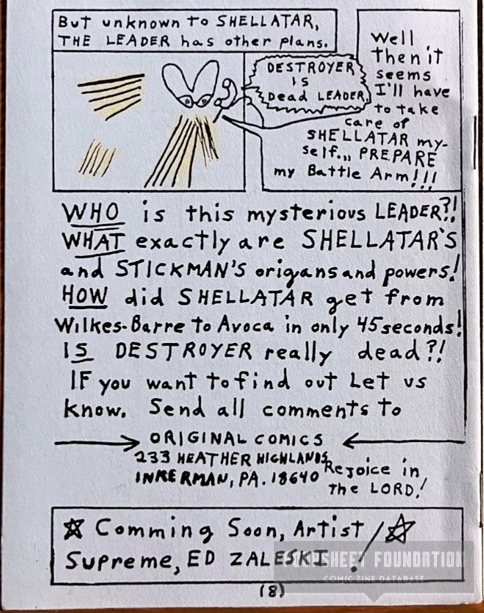 But unknown to SHELLATAR,
THE LEADER has other plans.
DESTROYER
is
Dead LEADER
Well
then it
seems
I'll have
to take
care of
SHELLATAR my-
self... PREPARE
my Battle Arm!!!
WHO is this mysterious LEADER?!
WHAT exactly are SHELLATAR'S
and STICKMAN'S origans and powers!
HOW did SHELLATAR get from
Wilkes-Barre to Avoca in only 45 seconds!
IS DESTROYER really dead?!
IF you want to find out Let us
know. Send all comments to
ORIGINAL COMICS
233 HEATHER HIGHLANDS
INKERMAN, PA. 18640
Rejoice in
the LORD!
☆ Comming Soon, Artist ☆
Supreme, ED ZALESKI !
(8)
FOUNDATION
COMIC ZINE DATABASE